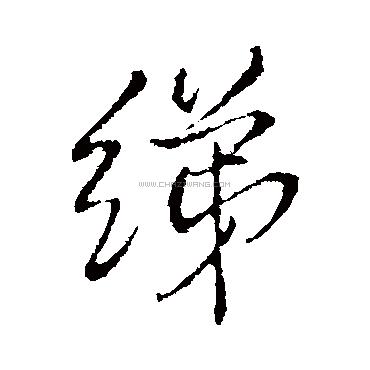 绨
WWW.CHAZIWANG.COM